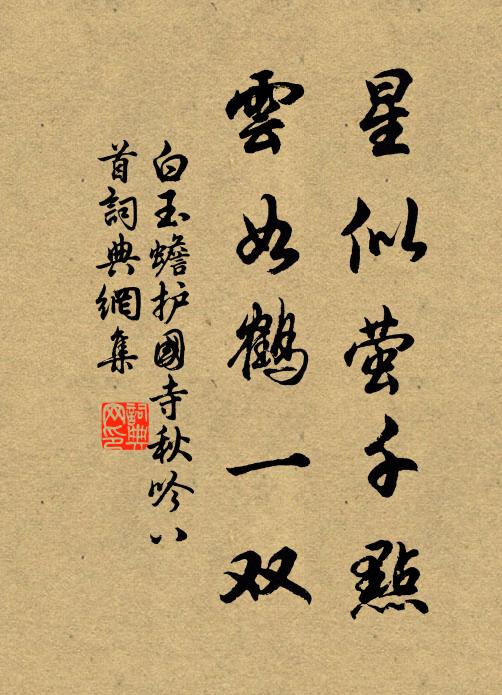 星似萤千點
雲如鶴一双
白玉蟾护國寺秋吟八
首詞典網集
詞典
网印